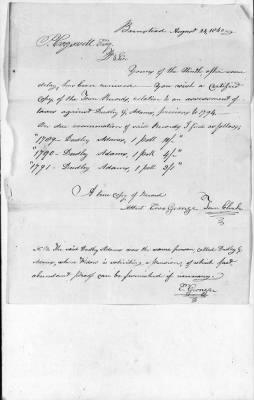 August 24, 18
Dr Sir
Yours of the Ninth after some
delay, has been received. You wish a certified
copy of the Town Records, relative to an assessment of
taxes against Dudley G. Adams, previous to 1794.
On due examination of said Records I find as follows,
"1789 - Dudley Adams, 1 poll
"1790 - Dudley Adams, 1 poll
"1791 - Dudley Adams, 1 poll
A true copy of Record
Attest George Town Clerk
N.B. The said Dudley Adams was the same person, called Dudley G
Adams, whose Widow is a Pension, of which fact
abundant proof can be furnished if necessary.
George